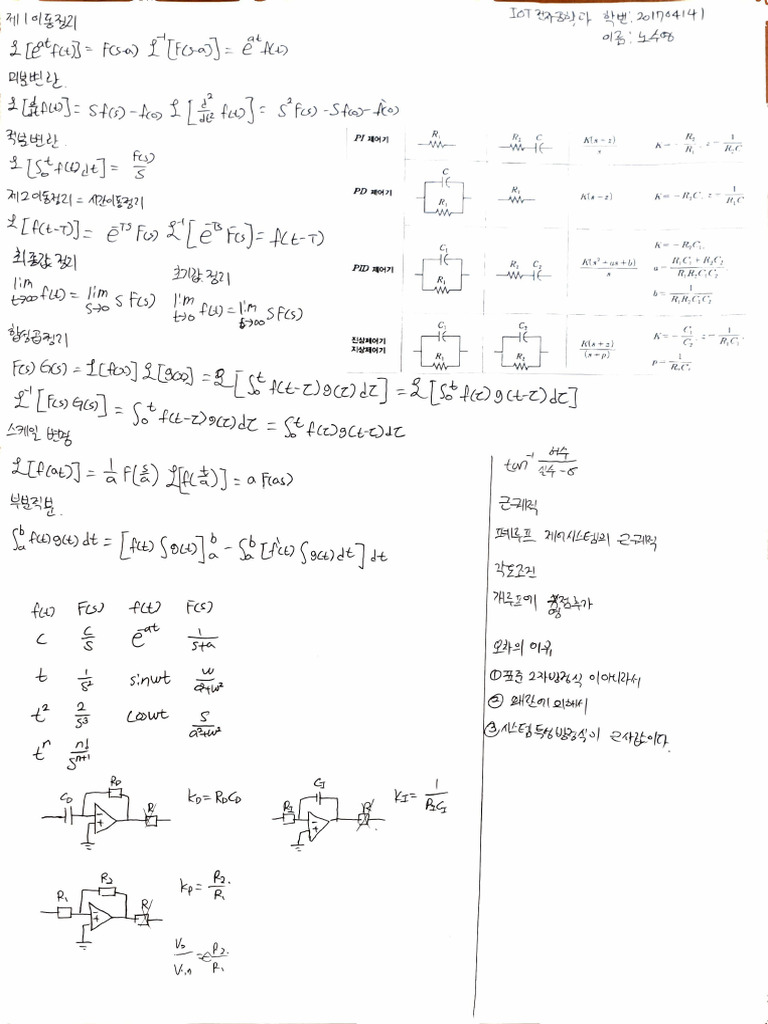 IOT전자공학과 학번: 201704141
이름: 노수영
제1이동정리
ℒ[e^{at}f(t)] = F(s-a) ℒ^{-1}[F(s-a)] = e^{at}f(t)
미분변환
ℒ[d/dt f(t)] = Sf(s)-f(0) ℒ[d²/dt² f(t)] = S²F(s)-Sf(0)-f'(0)
적분변환
ℒ[∫₀ᵗ f(t)dt] = F(s)/S
제2이동정리 = 시간이동정리
ℒ[f(t-T)] = e^{-TS}F(s) ℒ^{-1}[e^{-TS}F(s)] = f(t-T)
최종값 정리 초기값 정리
lim t→∞ f(t) = lim s→0 S F(s) lim t→0 f(t) = lim s→∞ S F(s)
합성곱정리
F(s)G(s) = ℒ[f(x)] ℒ[g(x)] = ℒ[∫₀ᵗ f(t-τ)g(τ)dτ] = ℒ[∫₀ᵗ f(τ)g(t-τ)dτ]
ℒ^{-1}[F(s)G(s)] = ∫₀ᵗ f(t-τ)g(τ)dτ = ∫₀ᵗ f(τ)g(t-τ)dτ
스케일 변환
ℒ[f(at)] = 1/a F(s/a) ℒ[f(t/a)] = a F(as)
부분적분
∫ₐᵇ f(t)g(t)dt = [f(t)∫g(t)]ₐᵇ - ∫ₐᵇ [f'(t)∫g(t)dt]dt
f(t) F(s) f(t) F(s)
C C/S e^{-at} 1/(s+a)
t 1/s² sinwt w/(s²+w²)
t² 2/s³ coswt s/(s²+w²)
tⁿ n!/s^{n+1}
C_D R_D R K_D = R_D C_D
R_I C_I R K_I = 1/(R_I C_I)
R₁ R₂ R K_P = R₂/R₁
V₀/Vin = -R₂/R₁
PI 제어기 R₁ R₂ C K(s-z)/s K=-R₂/R₁, z=-1/(R₂C)
PD 제어기 C R₁ R₂ K(s-z) K=-R₂C, z=-1/(R₁C)
PID 제어기 C₁ R₁ R₂ C₂ K(s²+as+b)/s K=-R₂C₁,
a=(R₁C₁+R₂C₂)/(R₁R₂C₁C₂)
b=1/(R₁R₂C₁C₂)
진상제어기
지상제어기 C₁ R₁ C₂ R₂ K(s+z)/(s+p) K=-C₁/C₂, z=1/(R₁C₁),
p=1/(R₂C₂)
tan⁻¹ 허수/(실수-σ)
근궤적
폐루프 제어시스템의 근궤적
각도조건
개루프에 영점추가
오차의 이유
① 표준 2차방정식 이 아니라서
② 외란에 의해서
③ 시스템 특성방정식이 근사값이다.